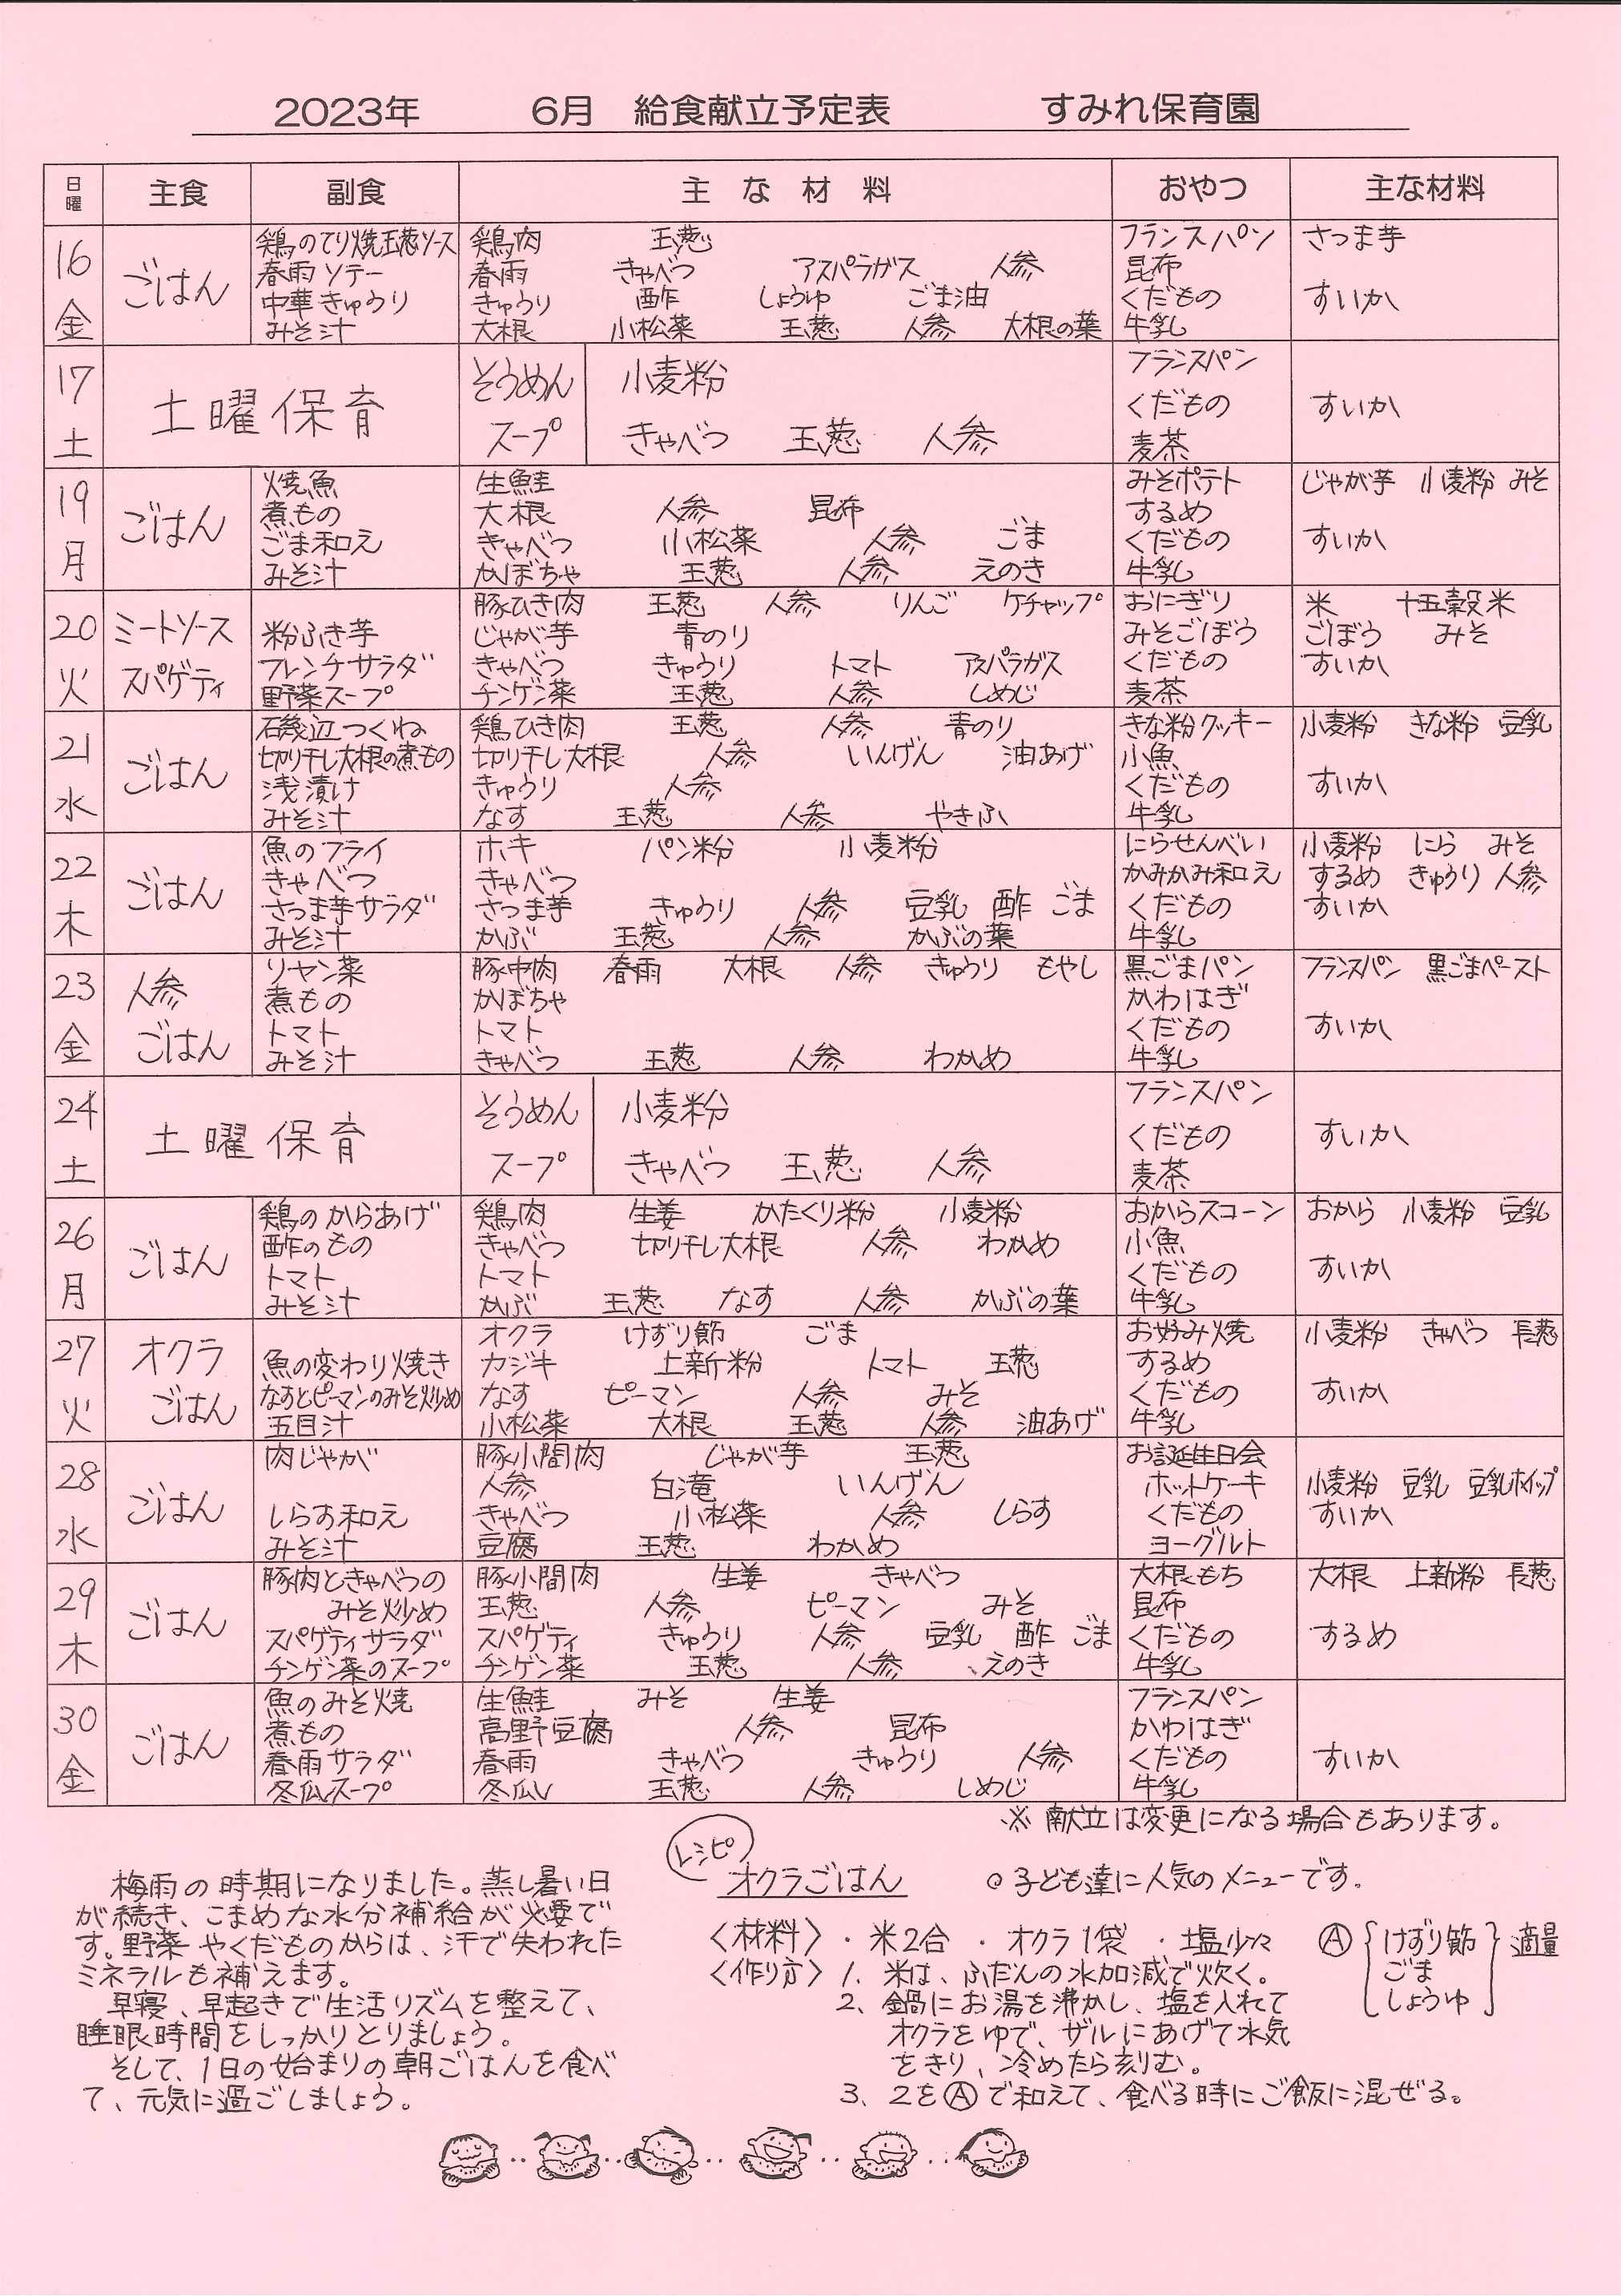 2023年 6月 給食献立予定表 すみれ保育園
日曜 主食 副食 主な材料 おやつ 主な材料
16 金 ごはん
鶏のてり焼玉葱ソース 鶏肉 玉葱 フランスパン さつま芋
春雨ソテー 春雨 きゃべつ アスパラガス 人参 昆布
中華きゅうり きゅうり 酢 しょうゆ ごま油 くだもの すいか
みそ汁 大根 小松菜 玉葱 人参 大根の葉 牛乳
17 土 土曜保育
そうめん 小麦粉 フランスパン
くだもの すいか
スープ きゃべつ 玉葱 人参 麦茶
19 月 ごはん
焼魚 生鮭 みそポテト じゃが芋 小麦粉 みそ
煮もの 大根 人参 昆布 するめ
ごま和え きゃべつ 小松菜 人参 ごま くだもの すいか
みそ汁 かぼちゃ 玉葱 人参 えのき 牛乳
20 火 ミートソース スパゲティ
豚ひき肉 玉葱 人参 りんご ケチャップ おにぎり 米 十五穀米
粉ふき芋 じゃが芋 青のり みそごぼう ごぼう みそ
フレンチサラダ きゃべつ きゅうり トマト アスパラガス くだもの すいか
野菜スープ チンゲン菜 玉葱 人参 しめじ 麦茶
21 水 ごはん
磯辺つくね 鶏ひき肉 玉葱 人参 青のり きな粉クッキー 小麦粉 きな粉 豆乳
切り干し大根の煮もの 切り干し大根 人参 いんげん 油あげ 小魚
浅漬け きゅうり 人参 くだもの すいか
みそ汁 なす 玉葱 人参 やきふ 牛乳
22 木 ごはん
魚のフライ ホキ パン粉 小麦粉 にらせんべい 小麦粉 にら みそ
きゃべつ きゃべつ かみかみ和え するめ きゅうり 人参
さつま芋サラダ さつま芋 きゅうり 人参 豆乳 酢 ごま くだもの すいか
みそ汁 かぶ 玉葱 人参 かぶの葉 牛乳
23 金 人参 ごはん
リャン菜 豚中肉 春雨 大根 人参 きゅうり もやし 黒ごまパン フランスパン 黒ごまペースト
煮もの かぼちゃ かわはぎ
トマト トマト くだもの すいか
みそ汁 きゃべつ 玉葱 人参 わかめ 牛乳
24 土 土曜保育
そうめん 小麦粉 フランスパン
くだもの すいか
スープ きゃべつ 玉葱 人参 麦茶
26 月 ごはん
鶏のからあげ 鶏肉 生姜 かたくり粉 小麦粉 おからスコーン おから 小麦粉 豆乳
酢のもの きゃべつ 切り干し大根 人参 わかめ 小魚
トマト トマト くだもの すいか
みそ汁 かぶ 玉葱 なす 人参 かぶの葉 牛乳
27 火 オクラ ごはん
オクラ けずり節 ごま お好み焼 小麦粉 きゃべつ 長葱
魚の変わり焼き カジキ 上新粉 トマト 玉葱 するめ
なすとピーマンのみそ炒め なす ピーマン 人参 みそ くだもの すいか
五目汁 小松菜 大根 玉葱 人参 油あげ 牛乳
28 水 ごはん
肉じゃが 豚小間肉 じゃが芋 玉葱 お誕生日会
人参 白滝 いんげん ホットケーキ 小麦粉 豆乳 豆乳ホイップ
しらす和え きゃべつ 小松菜 人参 しらす くだもの すいか
みそ汁 豆腐 玉葱 わかめ ヨーグルト
29 木 ごはん
豚肉ときゃべつの 豚小間肉 生姜 きゃべつ 大根もち 大根 上新粉 長葱
みそ炒め 玉葱 人参 ピーマン みそ 昆布
スパゲティサラダ スパゲティ きゅうり 人参 豆乳 酢 ごま くだもの するめ
チンゲン菜のスープ チンゲン菜 玉葱 人参 えのき 牛乳
30 金 ごはん
魚のみそ焼 生鮭 みそ 生姜 フランスパン
煮もの 高野豆腐 人参 昆布 かわはぎ
春雨サラダ 春雨 きゃべつ きゅうり 人参 くだもの すいか
冬瓜スープ 冬瓜 玉葱 人参 しめじ 牛乳
※ 献立は変更になる場合もあります。
梅雨の時期になりました。蒸し暑い日
が続き、こまめな水分補給が必要で
す。野菜やくだものからは、汗で失われた
ミネラルも補えます。
早寝、早起きで生活リズムを整えて、
睡眠時間をしっかりとりましょう。
そして、1日の始まりの朝ごはんを食べ
て、元気に過ごしましょう。
レシピ
オクラごはん ○子ども達に人気のメニューです。
〈材料〉・米2合 ・オクラ1袋 ・塩少々 Ⓐ{けずり節 ごま しょうゆ}適量
〈作り方〉1. 米は、ふだんの水加減で炊く。
2. 鍋にお湯を沸かし、塩を入れて
オクラをゆで、ザルにあげて水気
をきり、冷めたら刻む。
3. 2をⒶで和えて、食べる時にご飯に混ぜる。